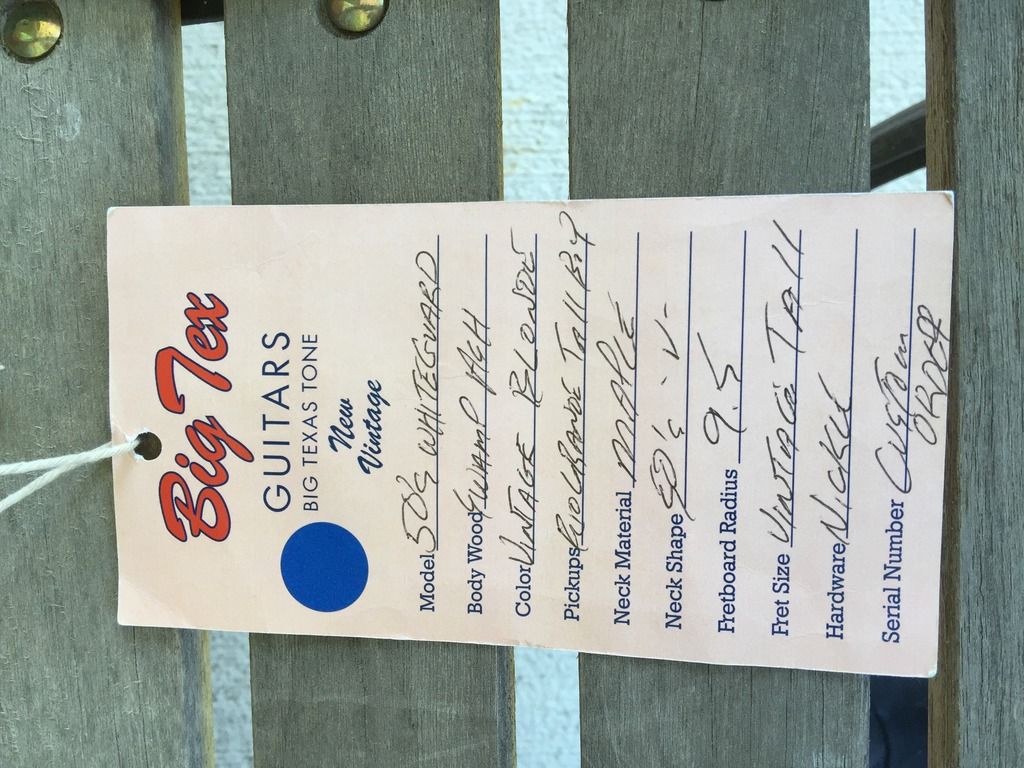 Big Tex
GUITARS
BIG TEXAS TONE
New
Vintage
Model 50'S WHITEGUARD
Body Wood SWAMP ASH
Color VINTAGE BLONDE
Pickups RIOGRANDE Tall Boy
Neck Material MAPLE
Neck Shape 50's - V -
Fretboard Radius 9.5
Fret Size VINTAGE TAll
Hardware NICKLE
Serial Number CUSTOM
ORDER